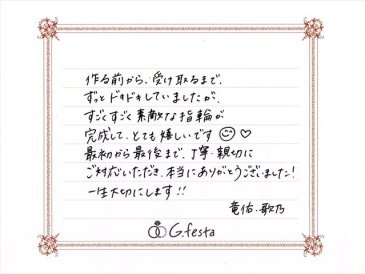 作る前から、受け取るまで、
ずっとドキドキしていましたが、
すごくすごく素敵な指輪が
完成して、とても嬉しいです
最初から最後まで、丁寧・親切に
ご対応いただき、本当にありがとうございました!
一生大切にします!!
竜佑・歌乃
G.festa